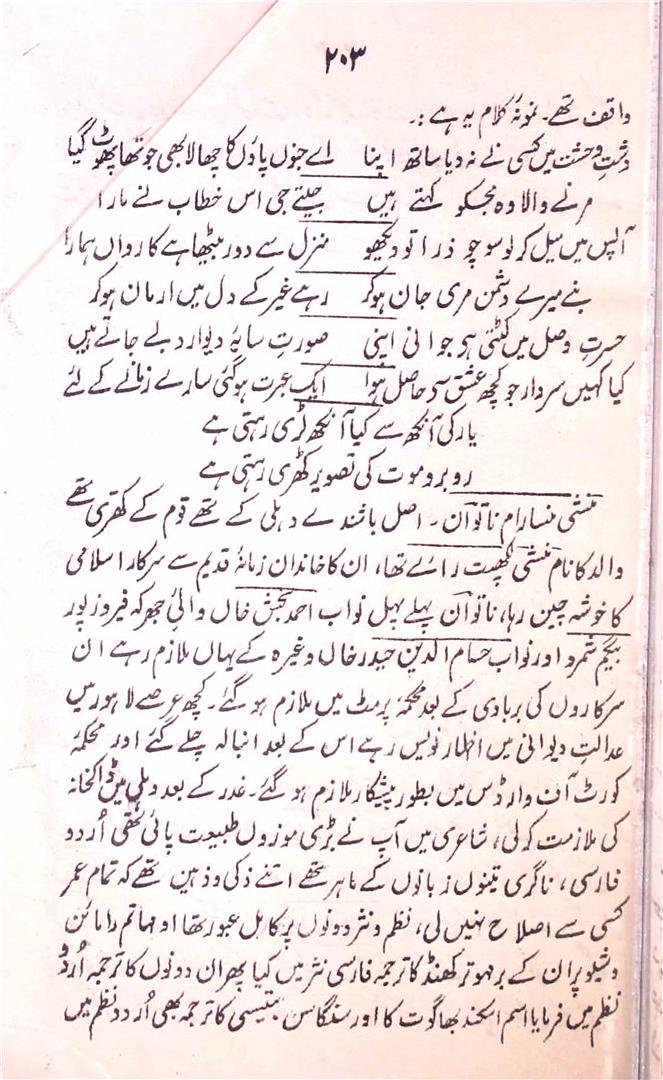 ۲۰۳
واقف تھے۔ نمونۂ کلام یہ ہے :۔
دشتِ وحشت میں کسی نے نہ دیا ساتھ اپنا اے جنوں پاؤں کا چھالا بھی جو تھا پھوٹ گیا
مرنے والا وہ مجکو کہتے ہیں جیتے جی اس خطاب نے مارا
آپس میں میل کر لو سوچو ذرا تو دیکھو منزل سے دور بیٹھا ہے کارواں ہمارا
بنے میرے دشمن مری جان ہوکر رہے غیر کے دل میں ارمان ہوکر
حسرتِ وصل میں کٹتی ہی جوانی اپنی صورتِ سایۂ دیوار دبے جاتے ہیں
کیا کہیں سردار جو کچھ عشق سی حاصل ہوا ایک عبرت ہوگئی سارے زمانے کے لئے
یار کی آنکھ سے کیا آنکھ لڑی رہتی ہے
روبرو موت کی تصویر کھڑی رہتی ہے
منشی منسارام ناتواں۔ اصل باشندے دہلی کے تھے قوم کے کھتری تھے
والد کا نام منشی لچھپت رائے تھا، ان کا خاندان زمانۂ قدیم سے سرکار اسلامی
کا خوشہ چین رہا، ناتواں پہلے پہل نواب احمد بخش خاں والئ جھرکہ فیروزپور
بیگم شمرو اور نواب حسام الدین حیدر خاں وغیرہ کے یہاں ملازم رہے ان
سرکاروں کی بربادی کے بعد محکمۂ پرمٹ میں ملازم ہو گئے۔ کچھ عرصے لاہور میں
عدالتِ دیوانی میں اظہار نویس رہے اس کے بعد انبالہ چلے گئے اور محکمۂ
کورٹ آف وارڈس میں بطور پیشکار ملازم ہو گئے۔ غدر کے بعد دہلی میں ڈاکخانہ
کی ملازمت کرلی، شاعری میں آپ نے بڑی موزوں طبیعت پائی تھی اُردو
فارسی، ناگری تینوں زبانوں کے ماہر تھے اتنے ذکی و ذہین تھے کہ تمام عمر
کسی سے اصلاح نہیں لی، نظم و نثر دونوں پر کامل عبور تھا ادھیاتم رامائن
و شیو پران کے برمہوتر کھنڈ کا ترجمہ فارسی نثر میں کیا پھر ان دونوں کا ترجمہ اُردو
نظم میں فرمایا اسم اسکند بھاگوت کا اور سنگاسن بتیسی کا ترجمہ بھی اُردو نظم میں